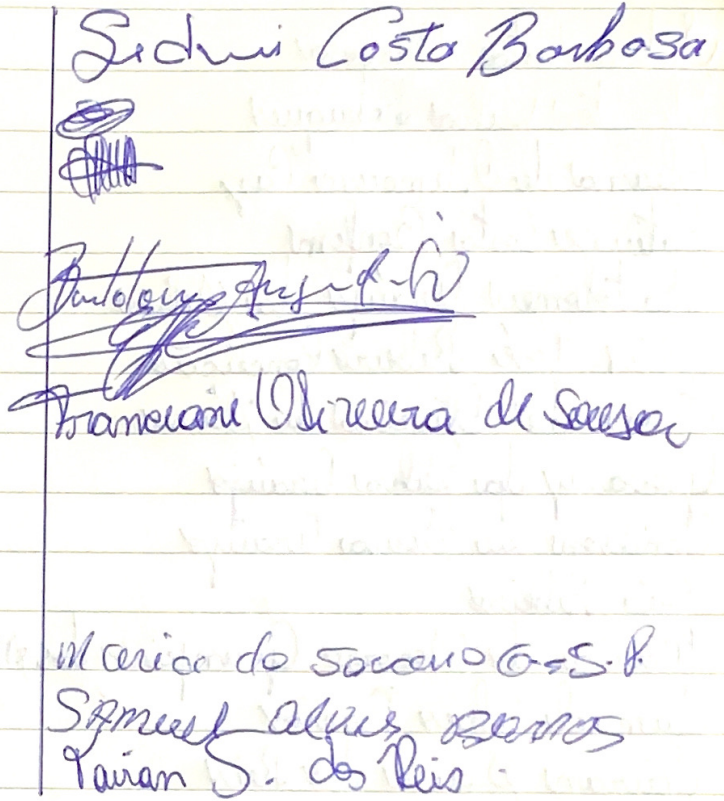 Costa Barbosa
Franciane Oliveira de Sousa
Maria do Socorro G. S. P.
Samuel Alves Barros
Tairan S. dos Reis